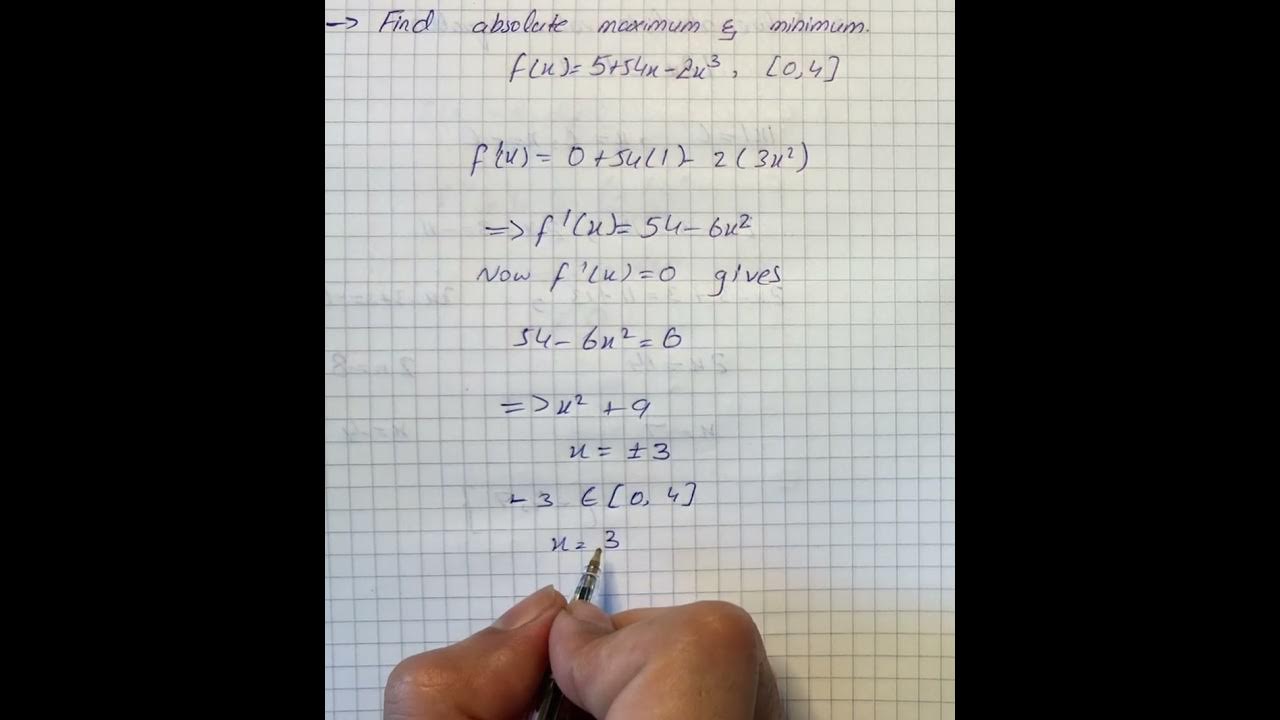 → Find absolute maximum & minimum.
f(x)= 5+54x-2x³, [0,4]
f'(x)= 0+54(1)- 2(3x²)
=> f'(x)= 54-6x²
Now f'(x)=0 gives
54-6x²=0
=> x² + 9
x= ±3
-3 ∈ [0,4]
x= 3